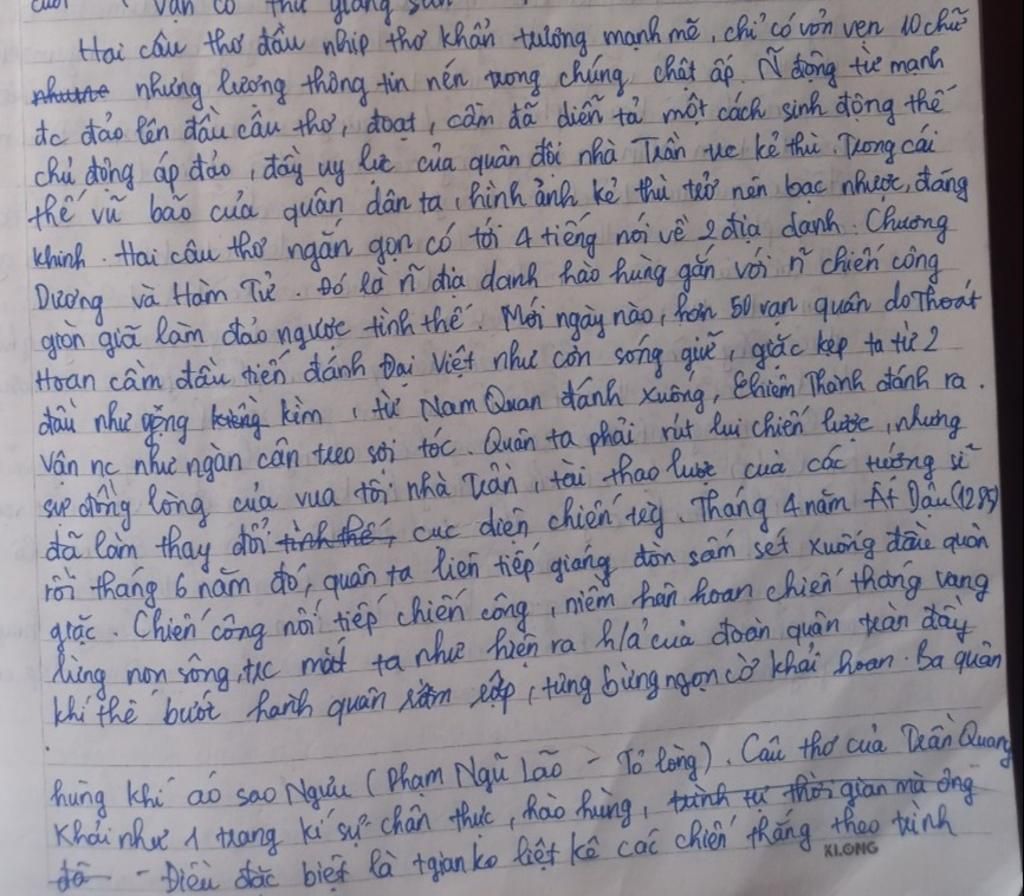 vạn cổ thử giang sơn
Hai câu thơ đầu nhịp thơ khẩn trương mạnh mẽ, chỉ có vỏn vẹn 10 chữ
nhưng lượng thông tin nén trong chúng chật ấp. ñ động từ mạnh
đc đảo lên đầu câu thơ, đoạt, cầm đã diễn tả một cách sinh động thế
chủ động áp đảo, đầy uy lực của quân đội nhà Trần kẻ thù. Trong cái
thế vũ bão của quân dân ta, hình ảnh kẻ thù trở nên bạc nhược, đáng
khinh. Hai câu thơ ngắn gọn có tới 4 tiếng nói về 2 địa danh. Chương
Dương và Hàm Tử. Đó là ñ địa danh hào hùng gắn với ñ chiến công
giòn giã làm đảo ngược tình thế. Mới ngày nào, hơn 50 vạn quân do Thoát
Hoan cầm đầu tiến đánh Đại Việt như cơn sóng giữ, giặc kẹp ta từ 2
đầu như gọng kìm, từ Nam Quan đánh xuống, Chiêm Thành đánh ra.
Vận nc như ngàn cân treo sợi tóc. Quân ta phải rút lui chiến lược, nhưng
sự đồng lòng của vua tôi nhà Trần, tài thao lược của các tướng sĩ
đã làm thay đổi tình thế, cục diện chiến Tháng 4 năm Ất Dậu (1285)
rồi tháng 6 năm đó, quân ta liên tiếp giáng đòn sấm sét xuống đầu quân
giặc. Chiến công nối tiếp chiến công, niềm hân hoan chiến thắng vang
lừng non sông, trc mắt ta như hiện ra h/ả của đoàn quân tràn đầy
khí thế bước hành quân rầm rập, tưng bừng ngọn cờ khải hoan. Ba quân
hùng khí áo sao Ngưu (Phạm Ngũ Lão - Tỏ lòng). Câu thơ của Trần Quang
Khải như 1 trang kí sự chân thực, hào hùng, trình tự thời gian mà ông
đã - Điều đặc biệt là tgian ko liệt kê các chiến thắng theo trình
KLONG